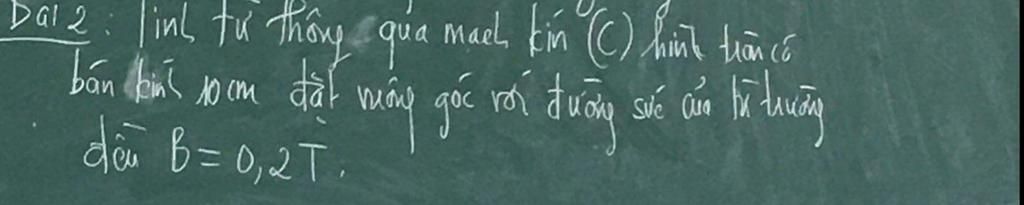 Bài 2: Tính từ thông qua mạch kín (C) hình tròn có
bán kính 10 cm đặt vuông góc với đường sức của từ trường
đều B = 0,2T.